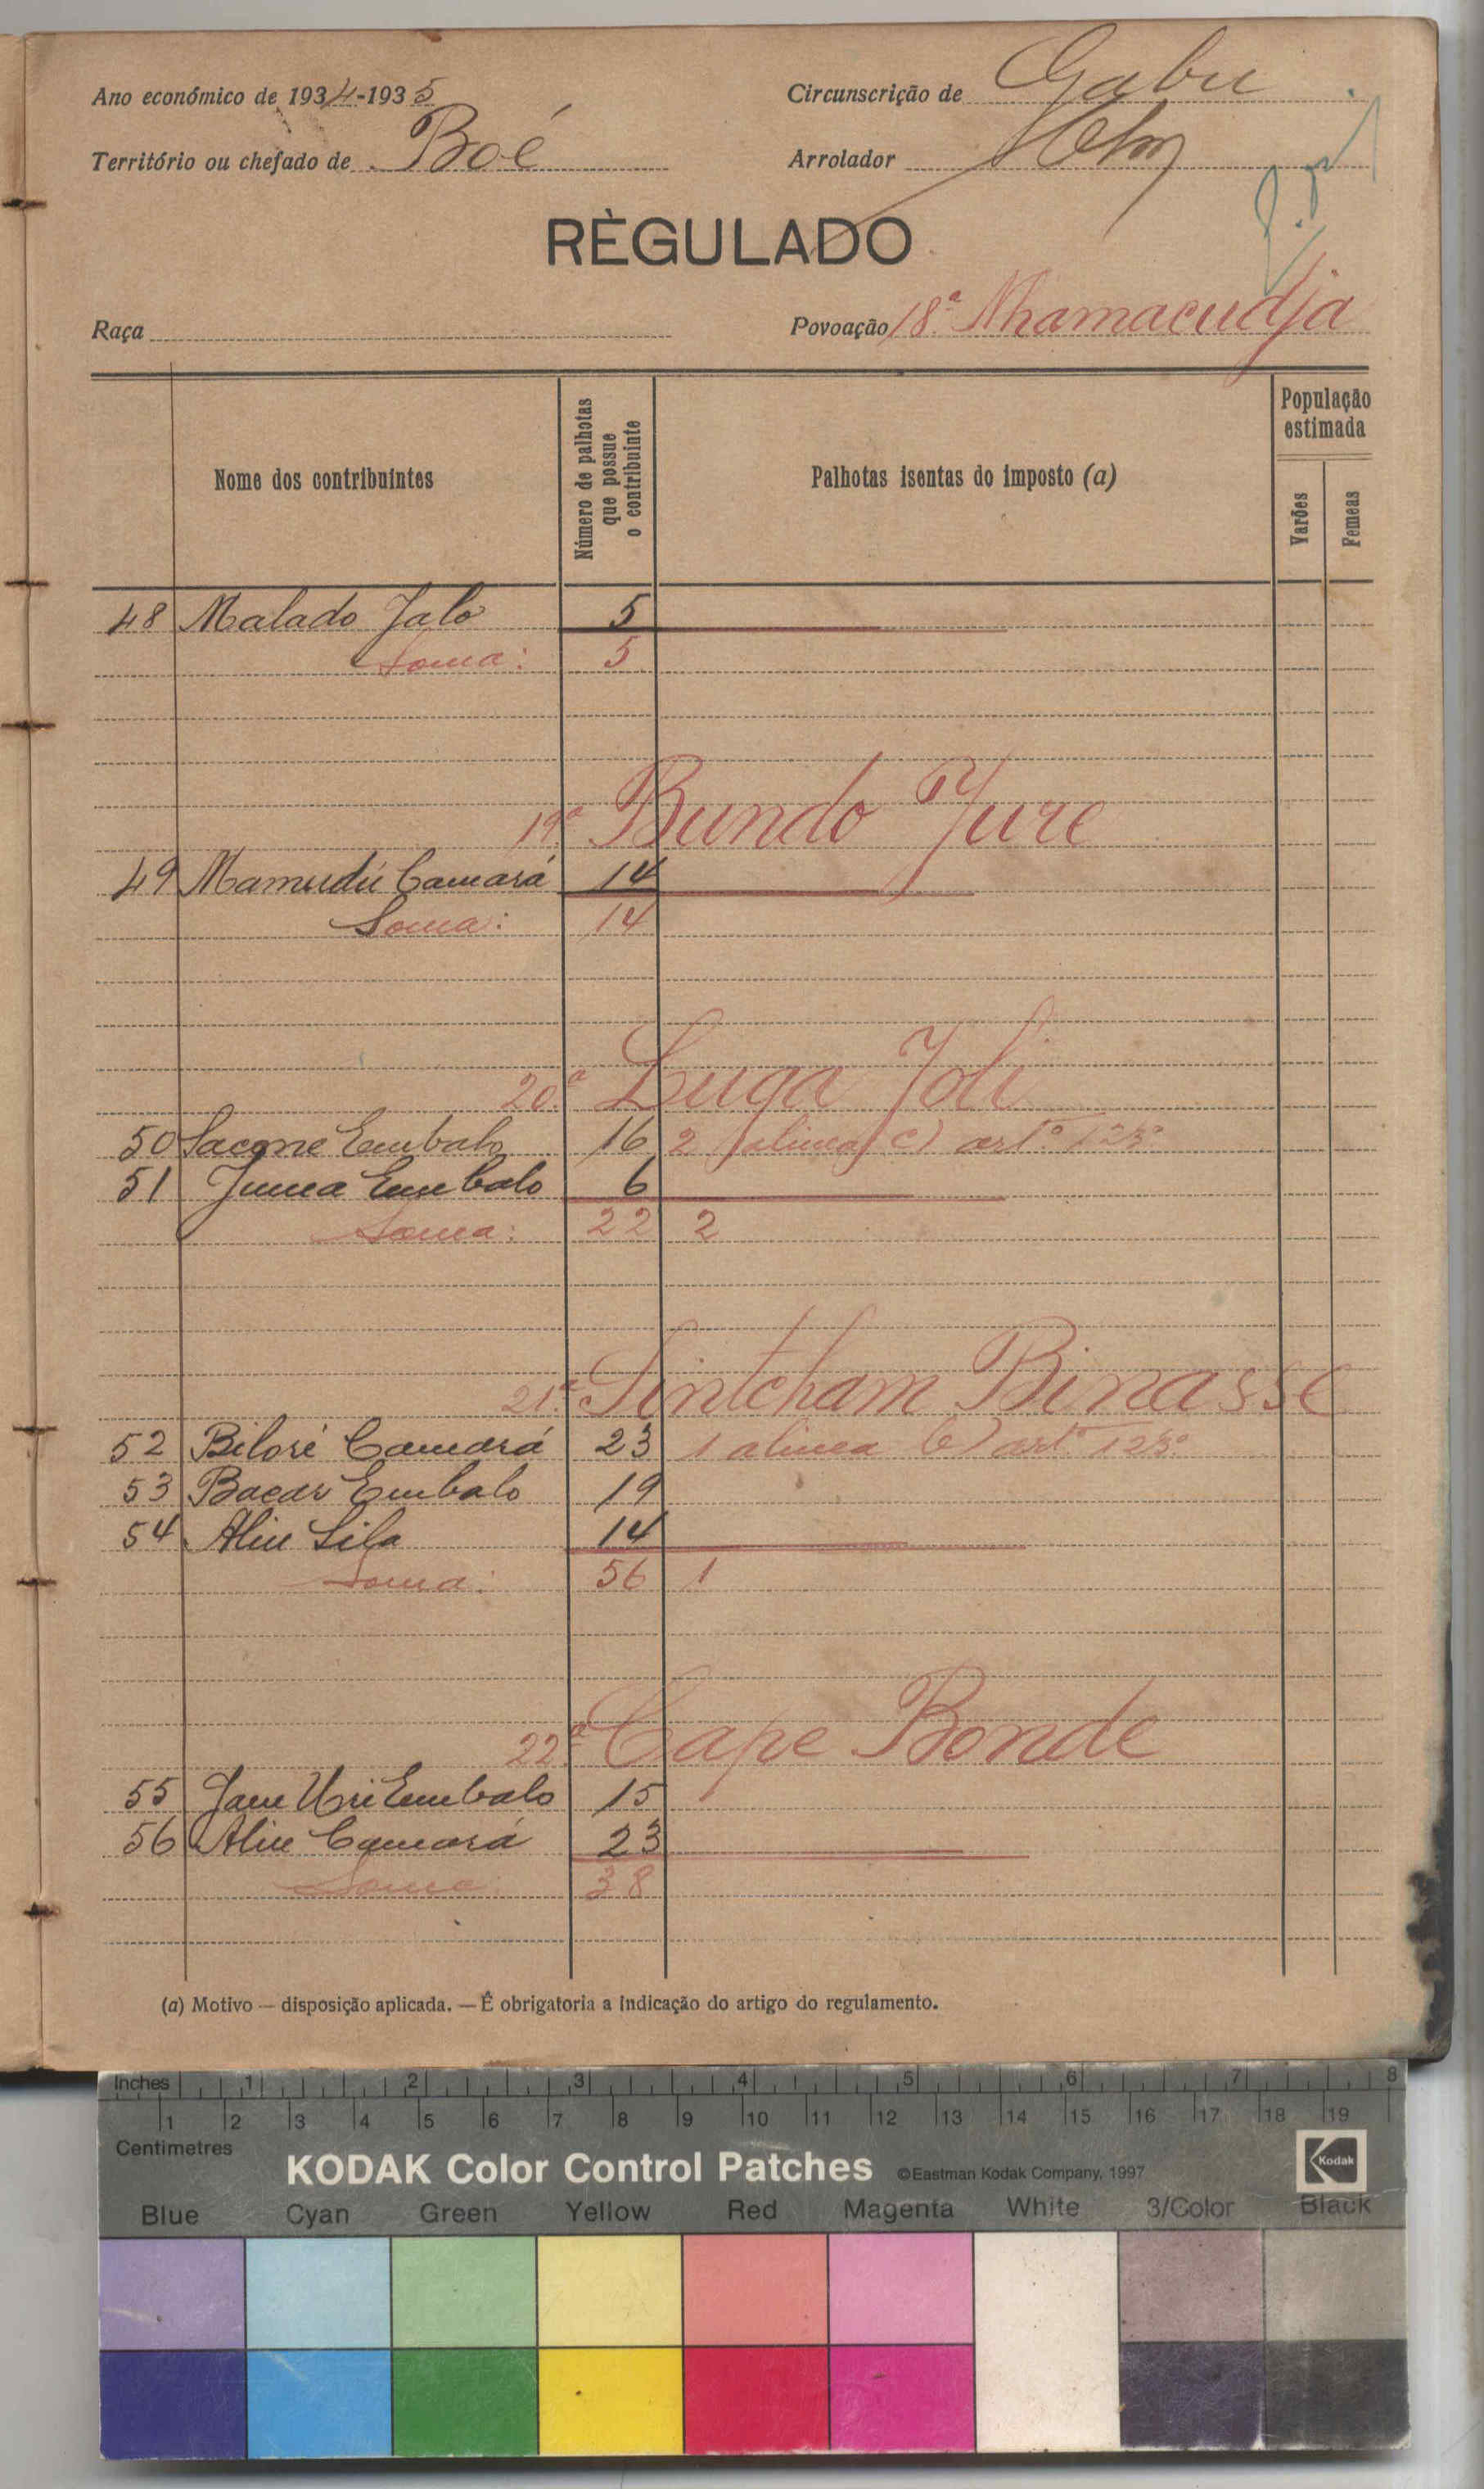 Ano económico de 1934-1935
Circunscrição de Gabu
Território ou chefado de Boé
Arrolador
RÈGULADO
Raça
Povoação 18.ª Nhamacudja
Nome dos contribuintes
Número de palhotas que possue o contribuinte
Palhotas isentas do imposto (a)
População estimada
Varões
Femeas
48 Malado Jalo 5
Soma: 5
19.ª Bundo Jure
49 Mamudú Camará 14
Soma: 14
20.ª Luga Joli
50 Sacone Embalo 16 2 alinea c) artº 123º
51 Juma Embalo 6
Soma: 22 2
21.ª Sintcham Binasse
52 Biloré Camará 23 1 alinea b) artº 123º
53 Bacar Embalo 19
54 Aliu Sila 14
Soma: 56 1
22.ª Cape Bonde
55 Jam Uri Embalo 15
56 Aliu Camará 23
Soma 38
(a) Motivo — disposição aplicada. — É obrigatoria a indicação do artigo do regulamento.
Inches 1 2 3 4 5 6 7 8
1 2 3 4 5 6 7 8 9 10 11 12 13 14 15 16 17 18 19
Centimetres
KODAK Color Control Patches ©Eastman Kodak Company, 1997 Kodak
Blue Cyan Green Yellow Red Magenta White 3/Color Black